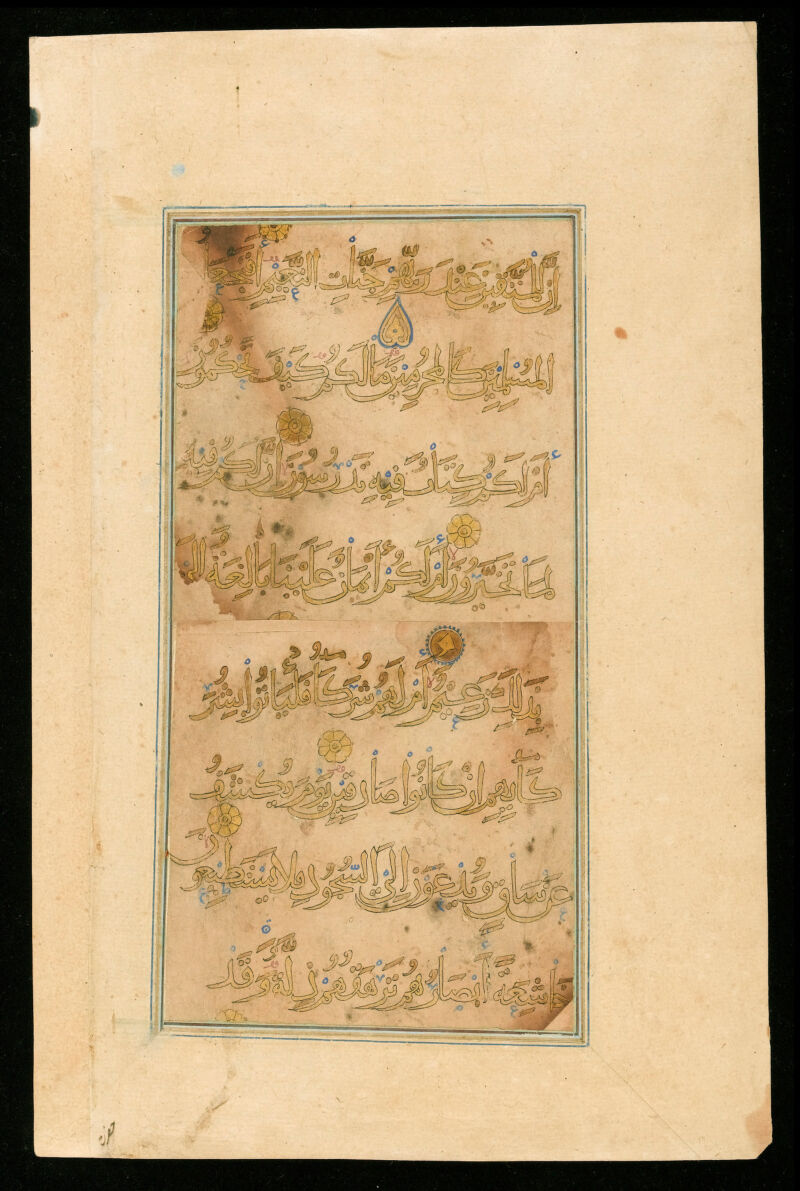 إِنَّ لِلْمُتَّقِينَ عِنْدَ رَبِّهِمْ جَنَّاتِ النَّعِيمِ أَفَنَجْعَلُ
الْمُسْلِمِينَ كَالْمُجْرِمِينَ مَا لَكُمْ كَيْفَ تَحْكُمُونَ
أَمْ لَكُمْ كِتَابٌ فِيهِ تَدْرُسُونَ إِنَّ لَكُمْ فِيهِ
لَمَا تَخَيَّرُونَ أَمْ لَكُمْ أَيْمَانٌ عَلَيْنَا بَالِغَةٌ إِلَى
بِذَلِكَ زَعِيمٌ أَمْ لَهُمْ شُرَكَاءُ فَلْيَأْتُوا بِشُرَ
كَائِهِمْ إِنْ كَانُوا صَادِقِينَ يَوْمَ يُكْشَفُ
عَنْ سَاقٍ وَيُدْعَوْنَ إِلَى السُّجُودِ فَلَا يَسْتَطِيعُونَ
خَاشِعَةً أَبْصَارُهُمْ تَرْهَقُهُمْ ذِلَّةٌ وَقَدْ